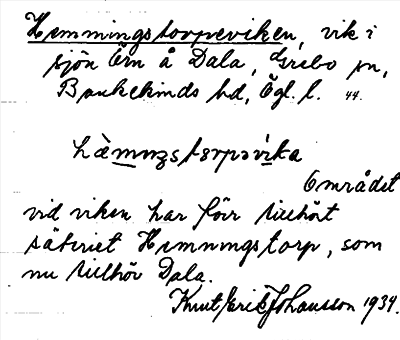 Hemmingstorpeviken, vik i
sjön Ärn å Dala, Grebo sn,
Bankekinds hd, Ögl. l. 44.
hæmɩŋstɔrpəvika
Området
vid viken har förr tillhört
säteriet Hemmingstorp, som
nu tillhör Dala.
Knut Erik Johansson 1934.